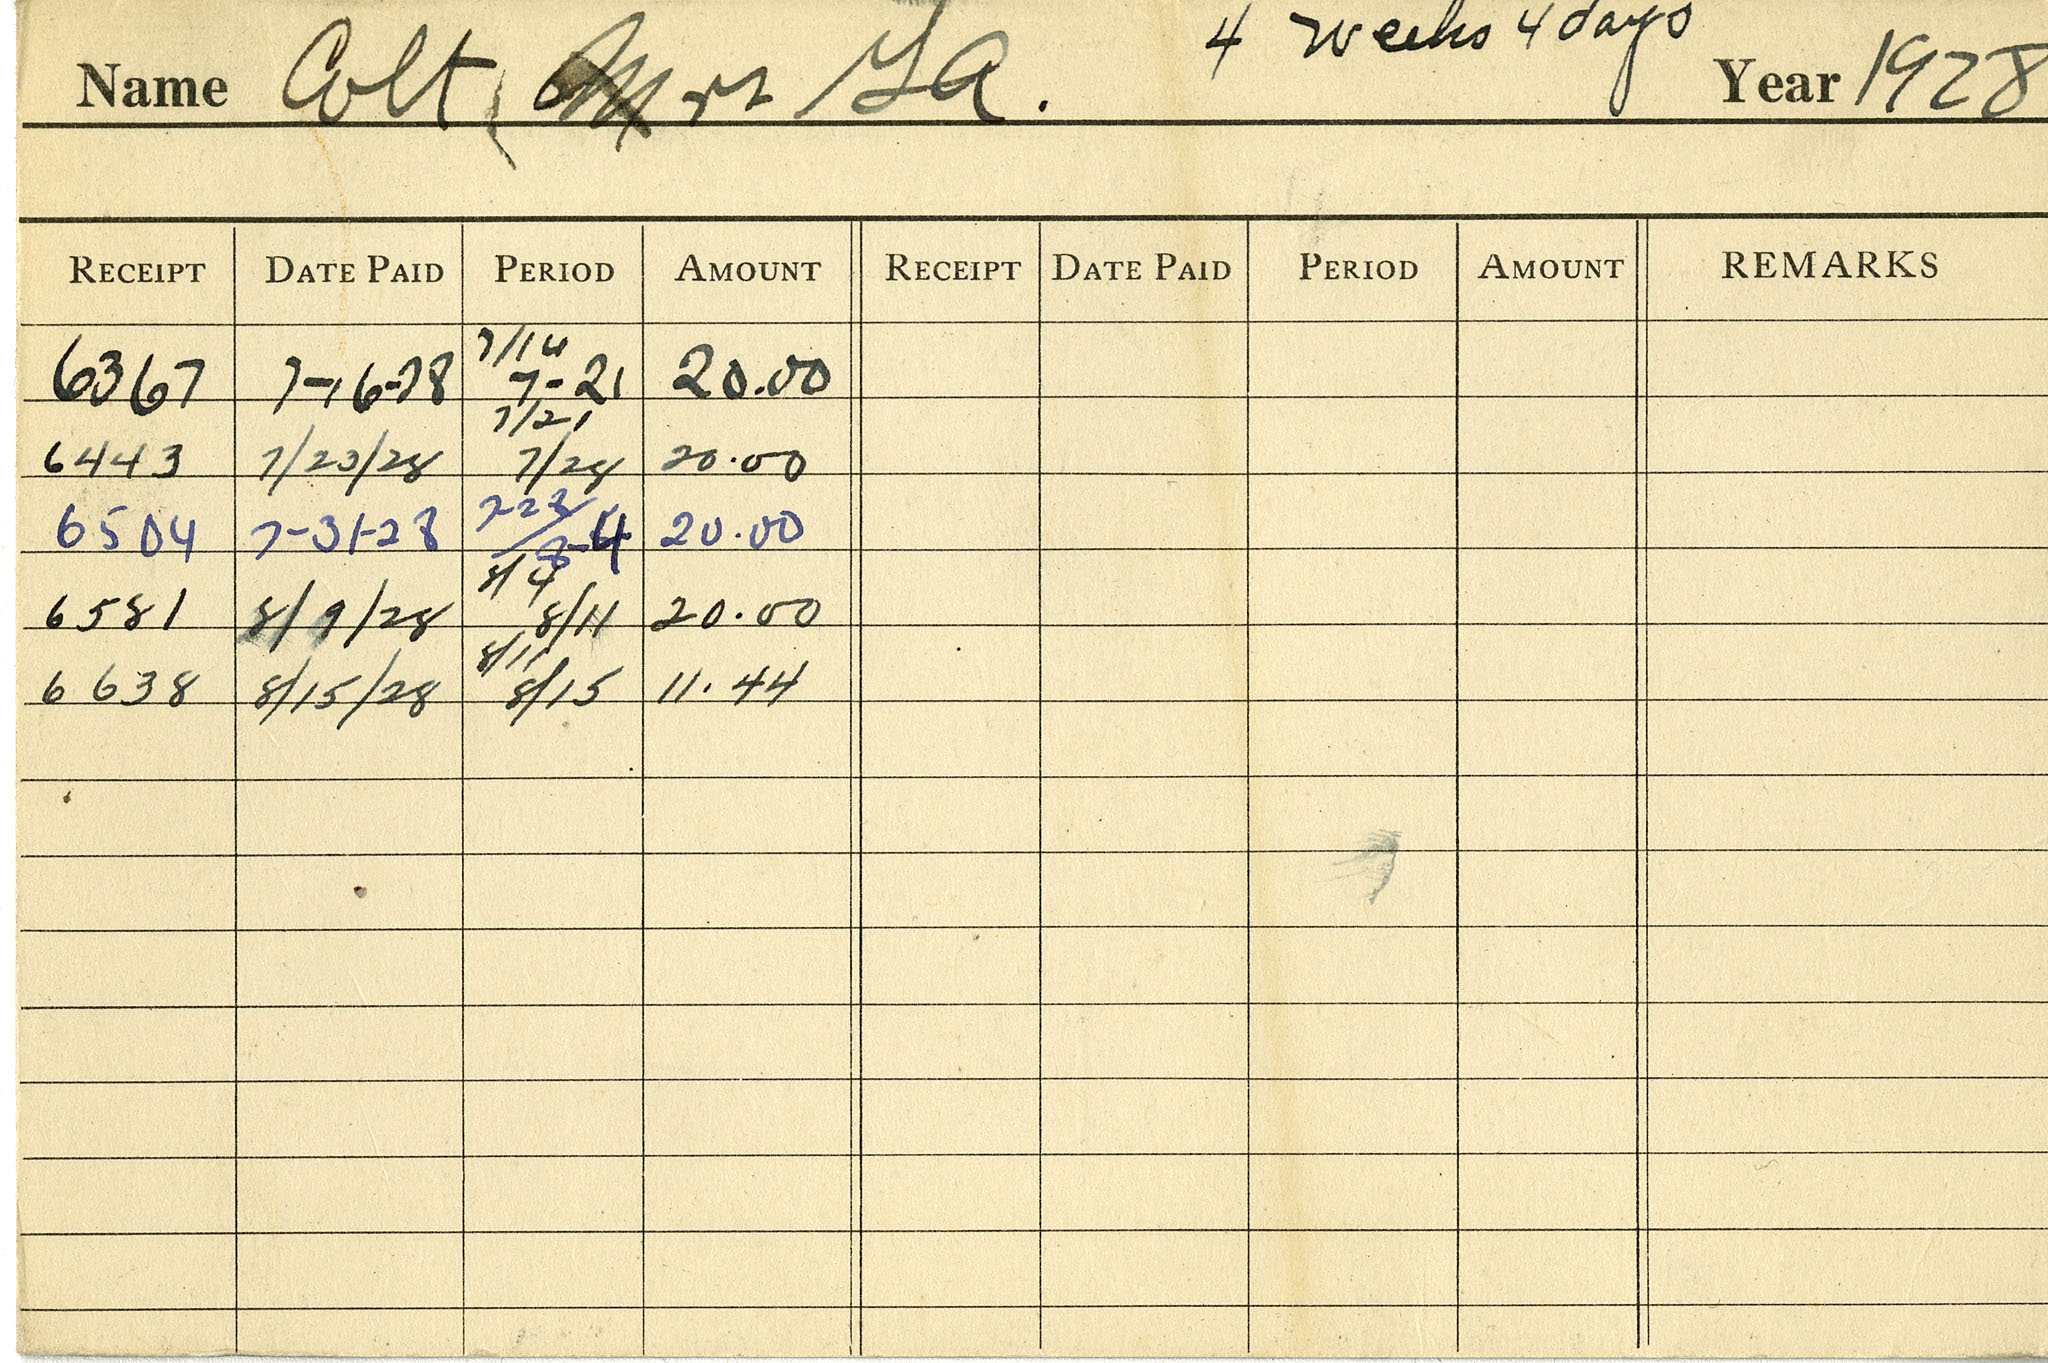 Name Colt, Mrs G A. 4 weeks 4 days Year 1928
RECEIPT DATE PAID PERIOD AMOUNT RECEIPT DATE PAID PERIOD AMOUNT REMARKS
7/14
6367 7-16-28 7-21 20.00
7/21
6443 7/23/28 7/28 20.00
7-28
6504 7-31-28 8-4 20.00
8/4
6581 8/9/28 8/11 20.00
8/11
6638 8/15/28 8/15 11.44